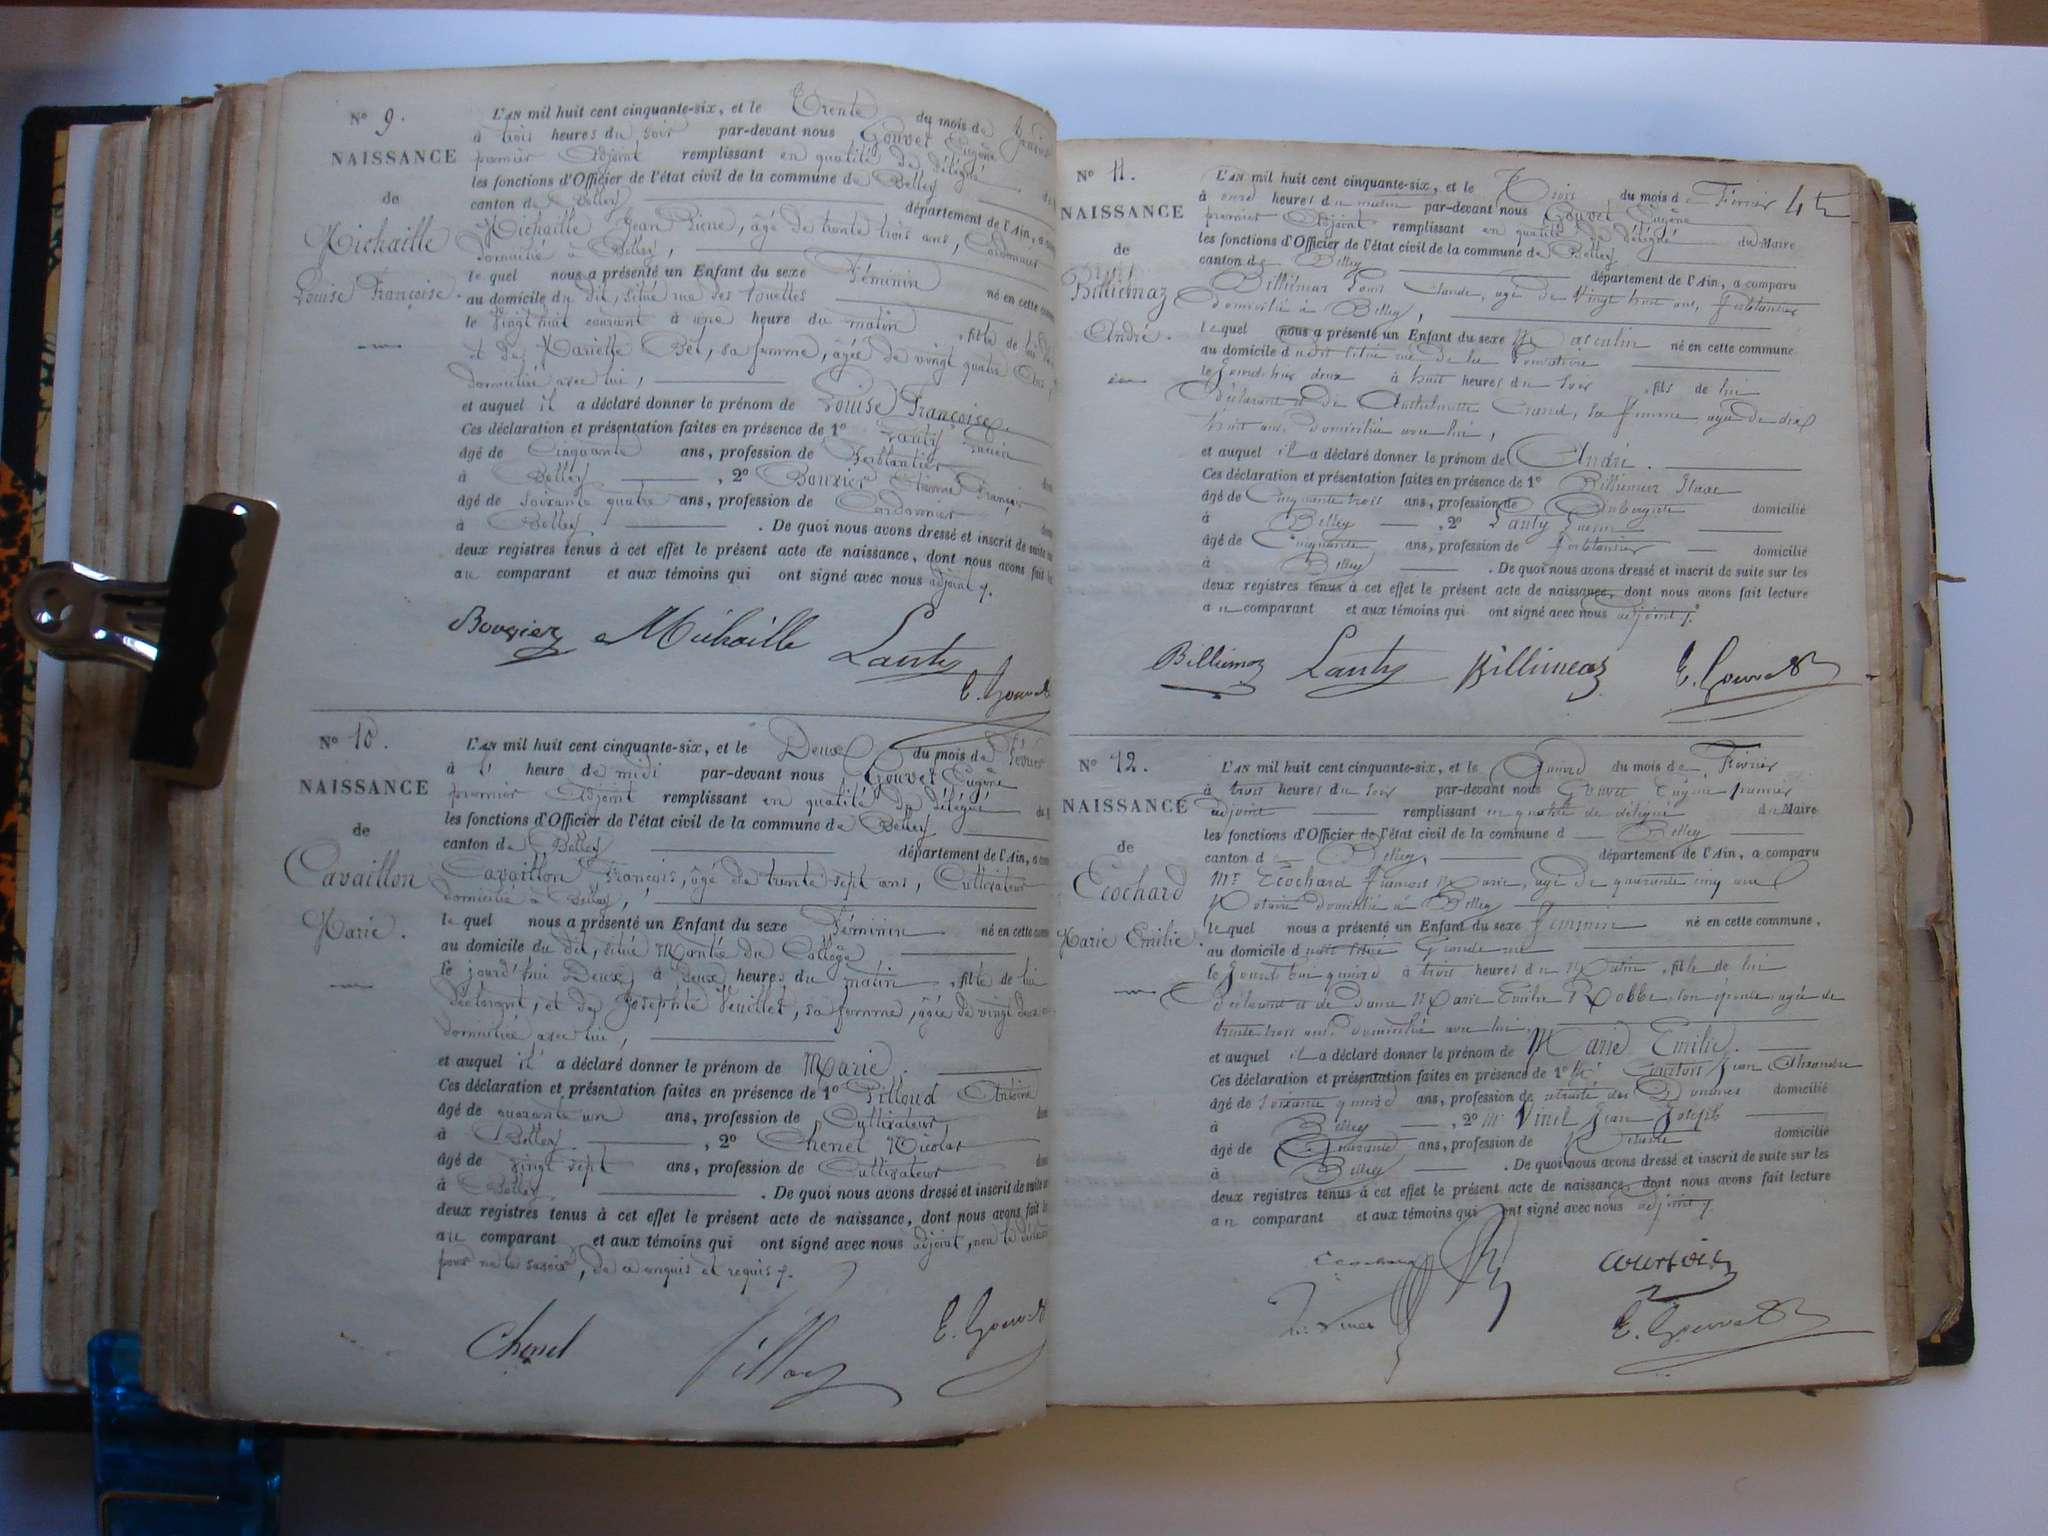 N° 9.
NAISSANCE
de
Michaille
Louise Françoise.
L'AN mil huit cent cinquante-six, et le Trente du mois de Janvier
à trois heures du soir par-devant nous Gouvet Eugène
premier Adjoint remplissant en qualité de délégué
les fonctions d'Officier de l'état civil de la commune de Belley
canton de Belley département de l'Ain, a com
Michaille Jean Pierre, âgé de trente trois ans, Cordonnier
domicilié à Belley,
le quel nous a présenté un Enfant du sexe Féminin né en cette com
au domicile du dit, situé rue des
le vingt huit courant à une heure du matin, fille de lui
et de Mariette Bel, sa femme, âgée de vingt quatre ans,
domiciliée avec lui,
et auquel il a déclaré donner le prénom de Louise Françoise
Ces déclaration et présentation faites en présence de 1° Lanty Lucien
âgé de Cinquante ans, profession de Ferblantier
à Belley, 2° Bouvier Etienne François
âgé de soixante quatre ans, profession de Cordonnier
à Belley. De quoi nous avons dressé et inscrit de suite
deux registres tenus à cet effet le présent acte de naissance, dont nous avons fait
au comparant et aux témoins qui ont signé avec nous adjoint.
Bouvier Michaille Lanty
E. Gouvet
N° 10.
NAISSANCE
de
Cavaillon
Marie.
L'AN mil huit cent cinquante-six, et le Deux du mois de Février
à l' heure de midi par-devant nous Gouvet Eugène
premier Adjoint remplissant en qualité de délégué du
les fonctions d'Officier de l'état civil de la commune de Belley
canton de Belley département de l'Ain, a com
Cavaillon François, âgé de trente sept ans, Cultivateur
domicilié à Belley,
le quel nous a présenté un Enfant du sexe Féminin né en cette com
au domicile du dit, situé Montée du Collège
le jourd'hui Deux, à deux heures du matin, fille de lui
déclarant, et de Josephte Veuillet, sa femme, âgée de vingt deux
domiciliée avec lui,
et auquel il a déclaré donner le prénom de Marie.
Ces déclaration et présentation faites en présence de 1° Pilloud Antoine
âgé de quarante un ans, profession de Cultivateur
à Belley, 2° Chenel Nicolas
âgé de vingt sept ans, profession de Cultivateur
à Belley. De quoi nous avons dressé et inscrit de suite
deux registres tenus à cet effet le présent acte de naissance, dont nous avons fait
au comparant et aux témoins qui ont signé avec nous adjoint, non le
pour ne le savoir, de ce enquis et requis.
Chenel E. Gouvet
N° 11.
NAISSANCE
de
Billiemaz
André.
L'AN mil huit cent cinquante-six, et le Trois du mois de Février
à onze heures du matin par-devant nous Gouvet Eugène
premier Adjoint remplissant en qualité de délégué du Maire
les fonctions d'Officier de l'état civil de la commune de Belley
canton de Belley département de l'Ain, a comparu
Billiemaz Louis Claude, agé de Vingt huit ans, ferblantier
domicilié à Belley,
le quel nous a présenté un Enfant du sexe Masculin né en cette commune
au domicile du dit situé rue de la
le jour d'hier deux à huit heures du soir, fils de lui
déclarant et de Anthelmette Crand, sa femme agée de dix
huit ans, domiciliée avec lui,
et auquel il a déclaré donner le prénom de André.
Ces déclaration et présentation faites en présence de 1° Billiemaz Isaac
âgé de Cinquante trois ans, profession de Aubergiste domicilié
à Belley, 2° Lanty Lucien
âgé de Cinquante ans, profession de ferblantier domicilié
à Belley. De quoi nous avons dressé et inscrit de suite sur les
deux registres tenus à cet effet le présent acte de naissance, dont nous avons fait lecture
au comparant et aux témoins qui ont signé avec nous adjoint.
Billiemaz Lanty Billiemaz E. Gouvet
N° 12.
NAISSANCE
de
Ecochard
Marie Emilie.
L'AN mil huit cent cinquante-six, et le Quinze du mois de Février
à trois heures du soir par-devant nous Gouvet Eugène premier
adjoint remplissant en qualité de délégué du Maire
les fonctions d'Officier de l'état civil de la commune d Belley
canton d Belley, département de l'Ain, a comparu
Mr Ecochard François Marie, agé de quarante cinq ans
Notaire domicilié à Belley
le quel nous a présenté un Enfant du sexe feminin né en cette commune,
au domicile du dit situé Grande rue
le jourd'hui quinze à trois heures du Matin, fille de lui
déclarant et de dame Marie Emilie Robbe, son épouse, agée de
trente trois ans, domiciliée avec lui,
et auquel il a déclaré donner le prénom de Marie Emilie.
Ces déclaration et présentation faites en présence de 1° Mr Courtois Jean Alexandre
âgé de soixante quinze ans, profession de retraité des Douanes domicilié
à Belley, 2° Mr Vinel Jean Joseph
âgé de Quarante ans, profession de Notaire domicilié
à Belley. De quoi nous avons dressé et inscrit de suite sur les
deux registres tenus à cet effet le présent acte de naissance, dont nous avons fait lecture
au comparant et aux témoins qui ont signé avec nous adjoint.
Ecochard Courtois
E. Gouvet